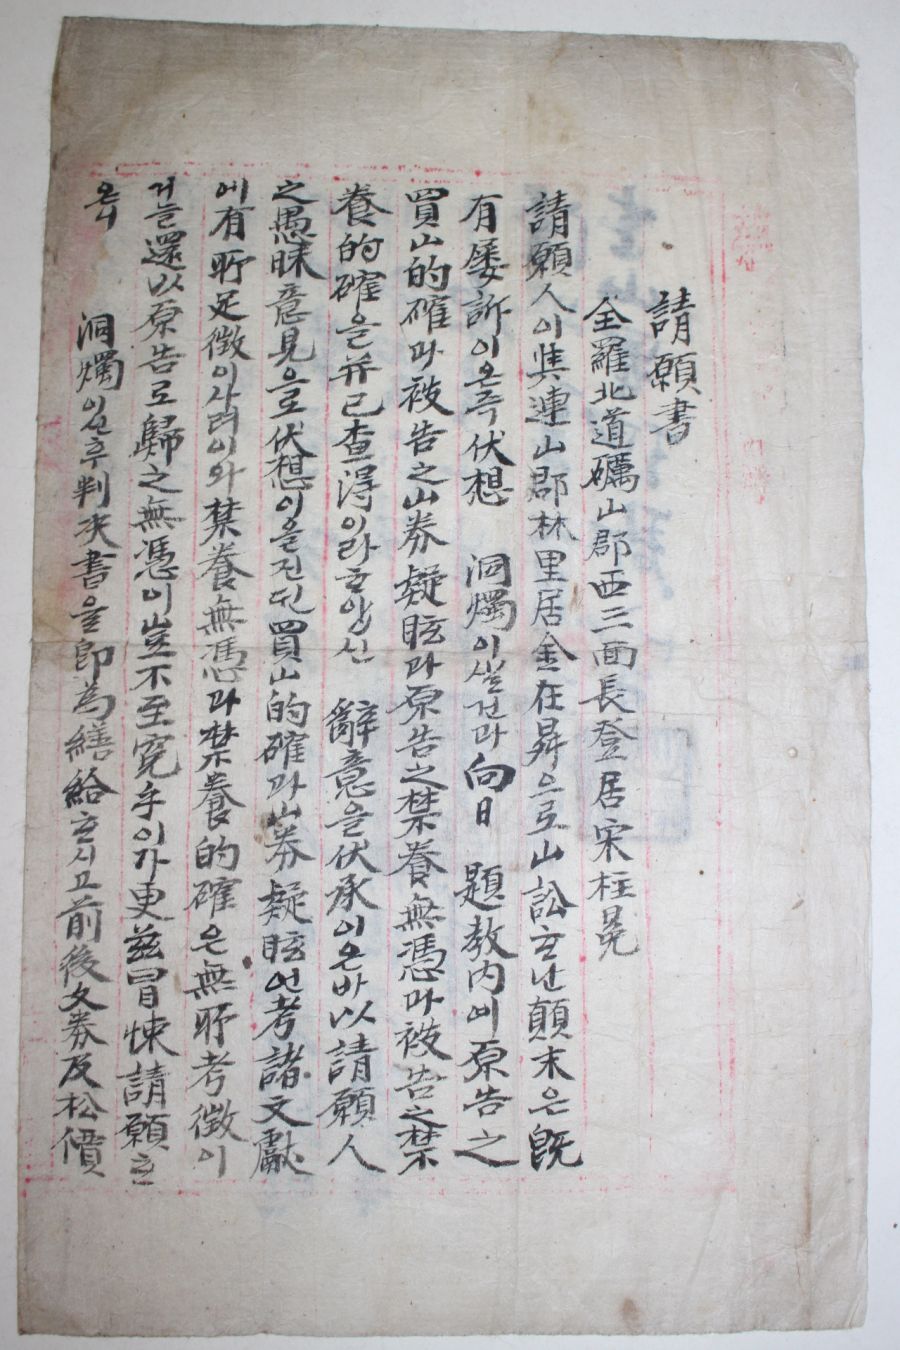 請願書
全羅北道礪山郡西三面長登居宋柱冕
請願人이與連山郡林里居金在昇으로山訟호난顚末은旣
有屢訴이온즉伏想 洞燭이실건과向日 題敎內에原告之
買山的確과被告之山券疑眩과原告之禁養無憑과被告之禁
養的確을并已査得이라호압신 辭意을伏承이온바以請願人
之愚昧意見으로伏想이을진딘買山的確과山券疑眩언考諸文獻
에有所足徵이사려이와禁養無憑과禁養的確은無所考徵이
거늘還以原告로歸之無憑이豈不至寃乎이가更玆冒悚請願호
온니 洞燭이신후判决書을卽爲繕給호시고前後文券及松價